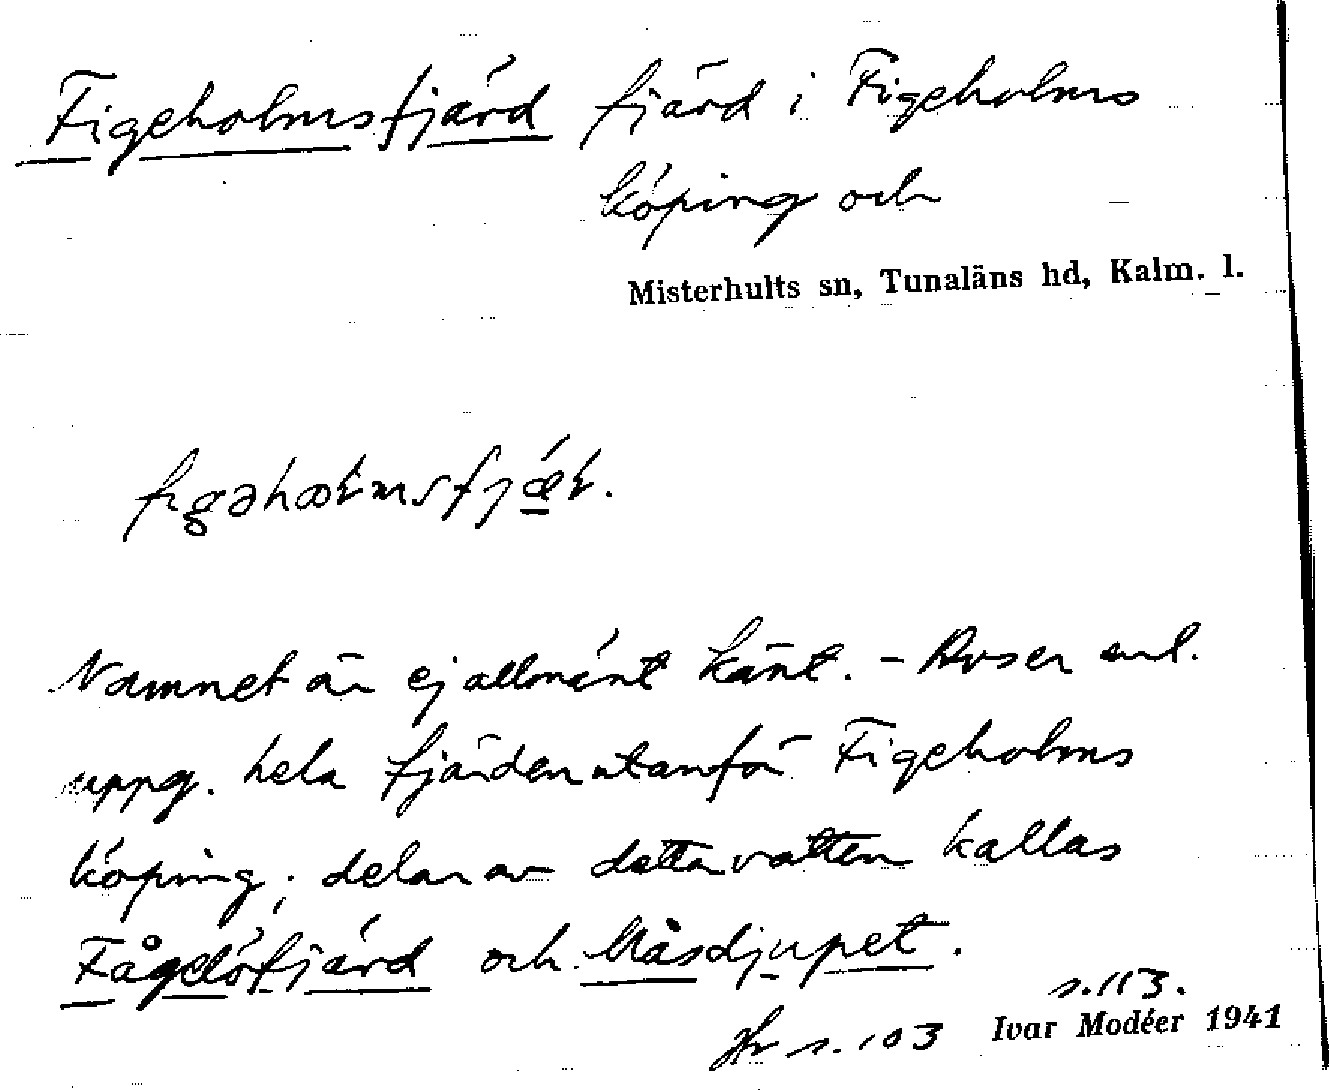 Figeholmsfjärd fjärd i Figeholms
köping och
Misterhults sn, Tunaläns hd, Kalm. l.
Namnet är ej allmänt känt. – Avser enl.
uppg. hela fjärden utanför Figeholms
köping; delar av detta vatten kallas
Fågelöfjärd och Måsdjupet.
s. 113.
Hr s. 103 Ivar Modéer 1941